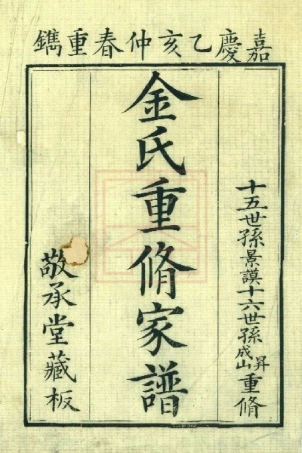 嘉慶乙亥仲春重鐫
十五世孫景謨十六世孫昇成山重脩
金氏重脩家譜
敬承堂藏板